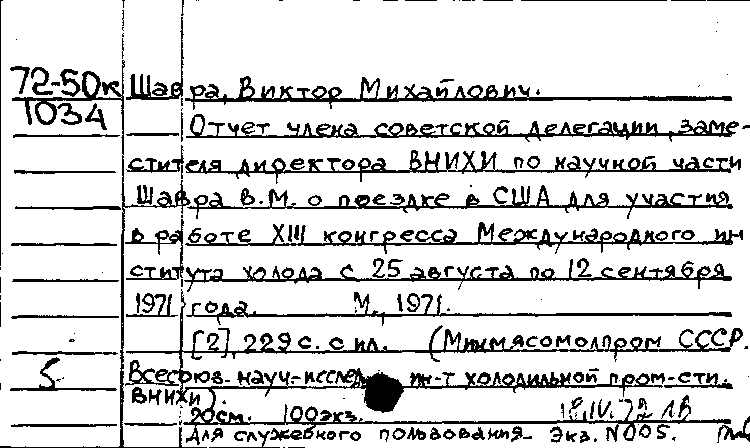 72-50к Шавра, Виктор Михайлович.
1034
Отчет члена советской делегации, заме-
стителя директора ВНИХИ по научной части
Шавра В.М. о поездке в США для участия
в работе XIII конгресса Международного ин
ститута холода с 25 августа по 12 сентября
1971 года. М., 1971.
[2], 229 с. с ил. (Минмясомолпром СССР.
5 Всесоюз. науч.-исслед. ин-т холодильной пром-сти.
ВНИХИ).
20см. 100экз. 18.IV.72 ЛВ
Для служебного пользования. Экз. N005.